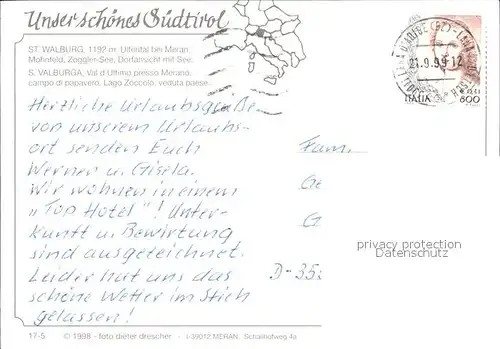 Unser schönes Südtirol
ST. WALBURG, 1192 m Ultental bei Meran
Mohnfeld, Zoggler-See, Dorfansicht mit See.
S. VALBURGA, Val d'Ultimo presso Merano,
campo di papavero, Lago Zoccolo, veduta paese.
21.9.99-12
ITALIA 800
Herzliche Urlaubsgrüße
von unserem Urlaubs-
ort senden Euch
Werner u. Gisela.
Wir wohnen in einem
„Top Hotel"! Unter-
kunft u. Bewirtung
sind ausgezeichnet.
Leider hat uns das
schöne Wetter im Stich
gelassen!
Fam.
Ge
G
D-35
privacy protection
Datenschutz
17-5 © 1998 - foto dieter drescher - I-39012 MERAN, Schallhofweg 4a